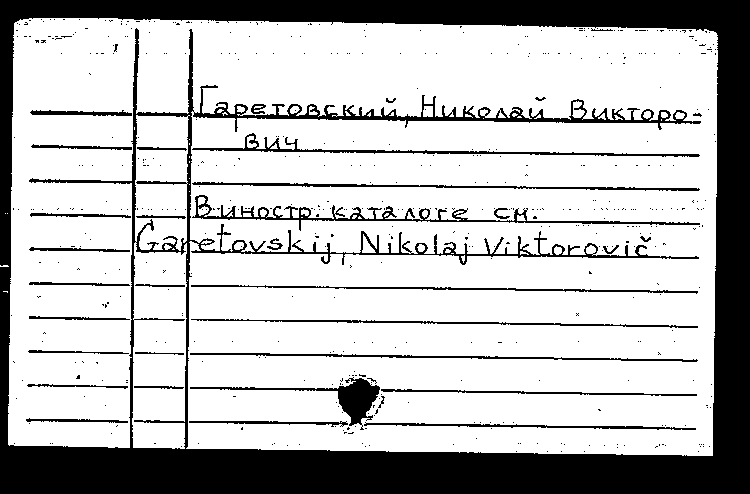 Гаретовский, Николай Викторо-
вич
В иностр. каталоге см.
Garetovskij, Nikolaj Viktorovič